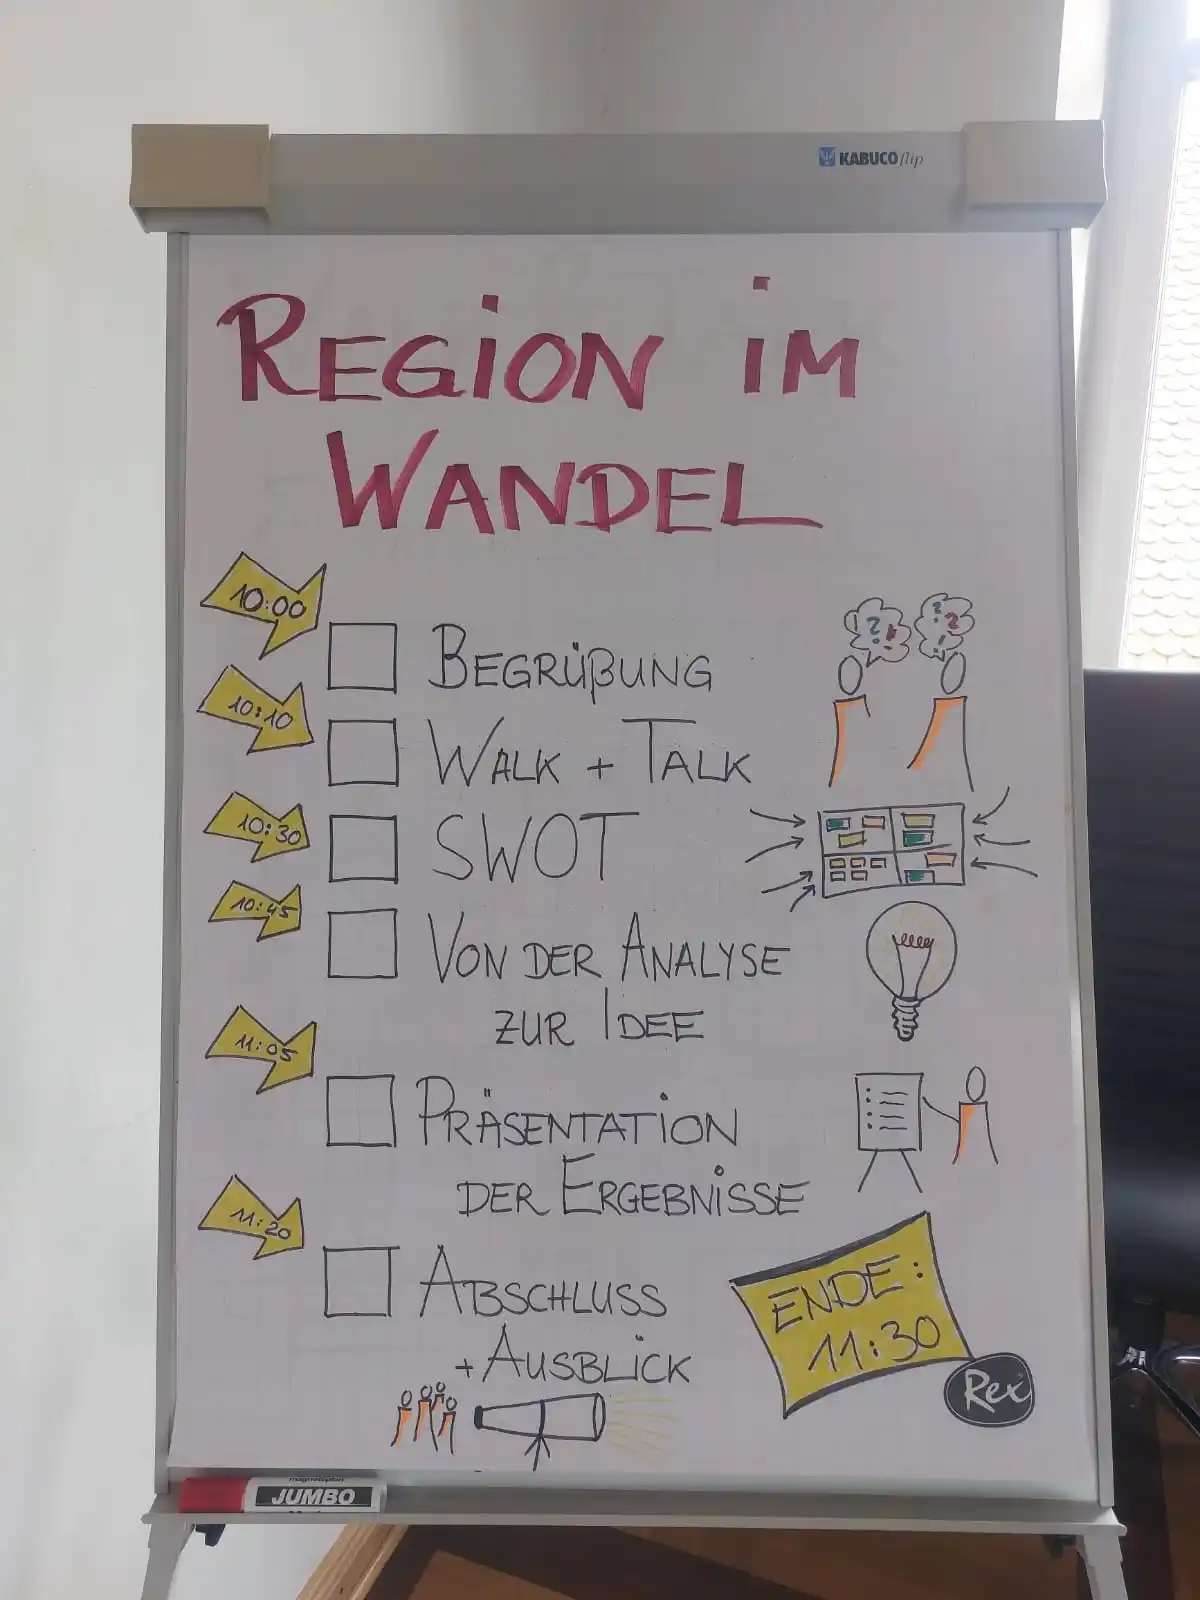 KABUCO flip
REGiON iM
WANDEL
10:00
BEGRÜßUNG
10:10
WALK + TALK
10:30
SWOT
10:45
VON DER ANALYSE
ZUR IDEE
11:05
PRÄSENTATiON
DER ERGEBNiSSE
11:20
ABSCHLUSS
+ AUSBLiCK
ENDE:
11:30
Rex
magnetoplan
JUMBO